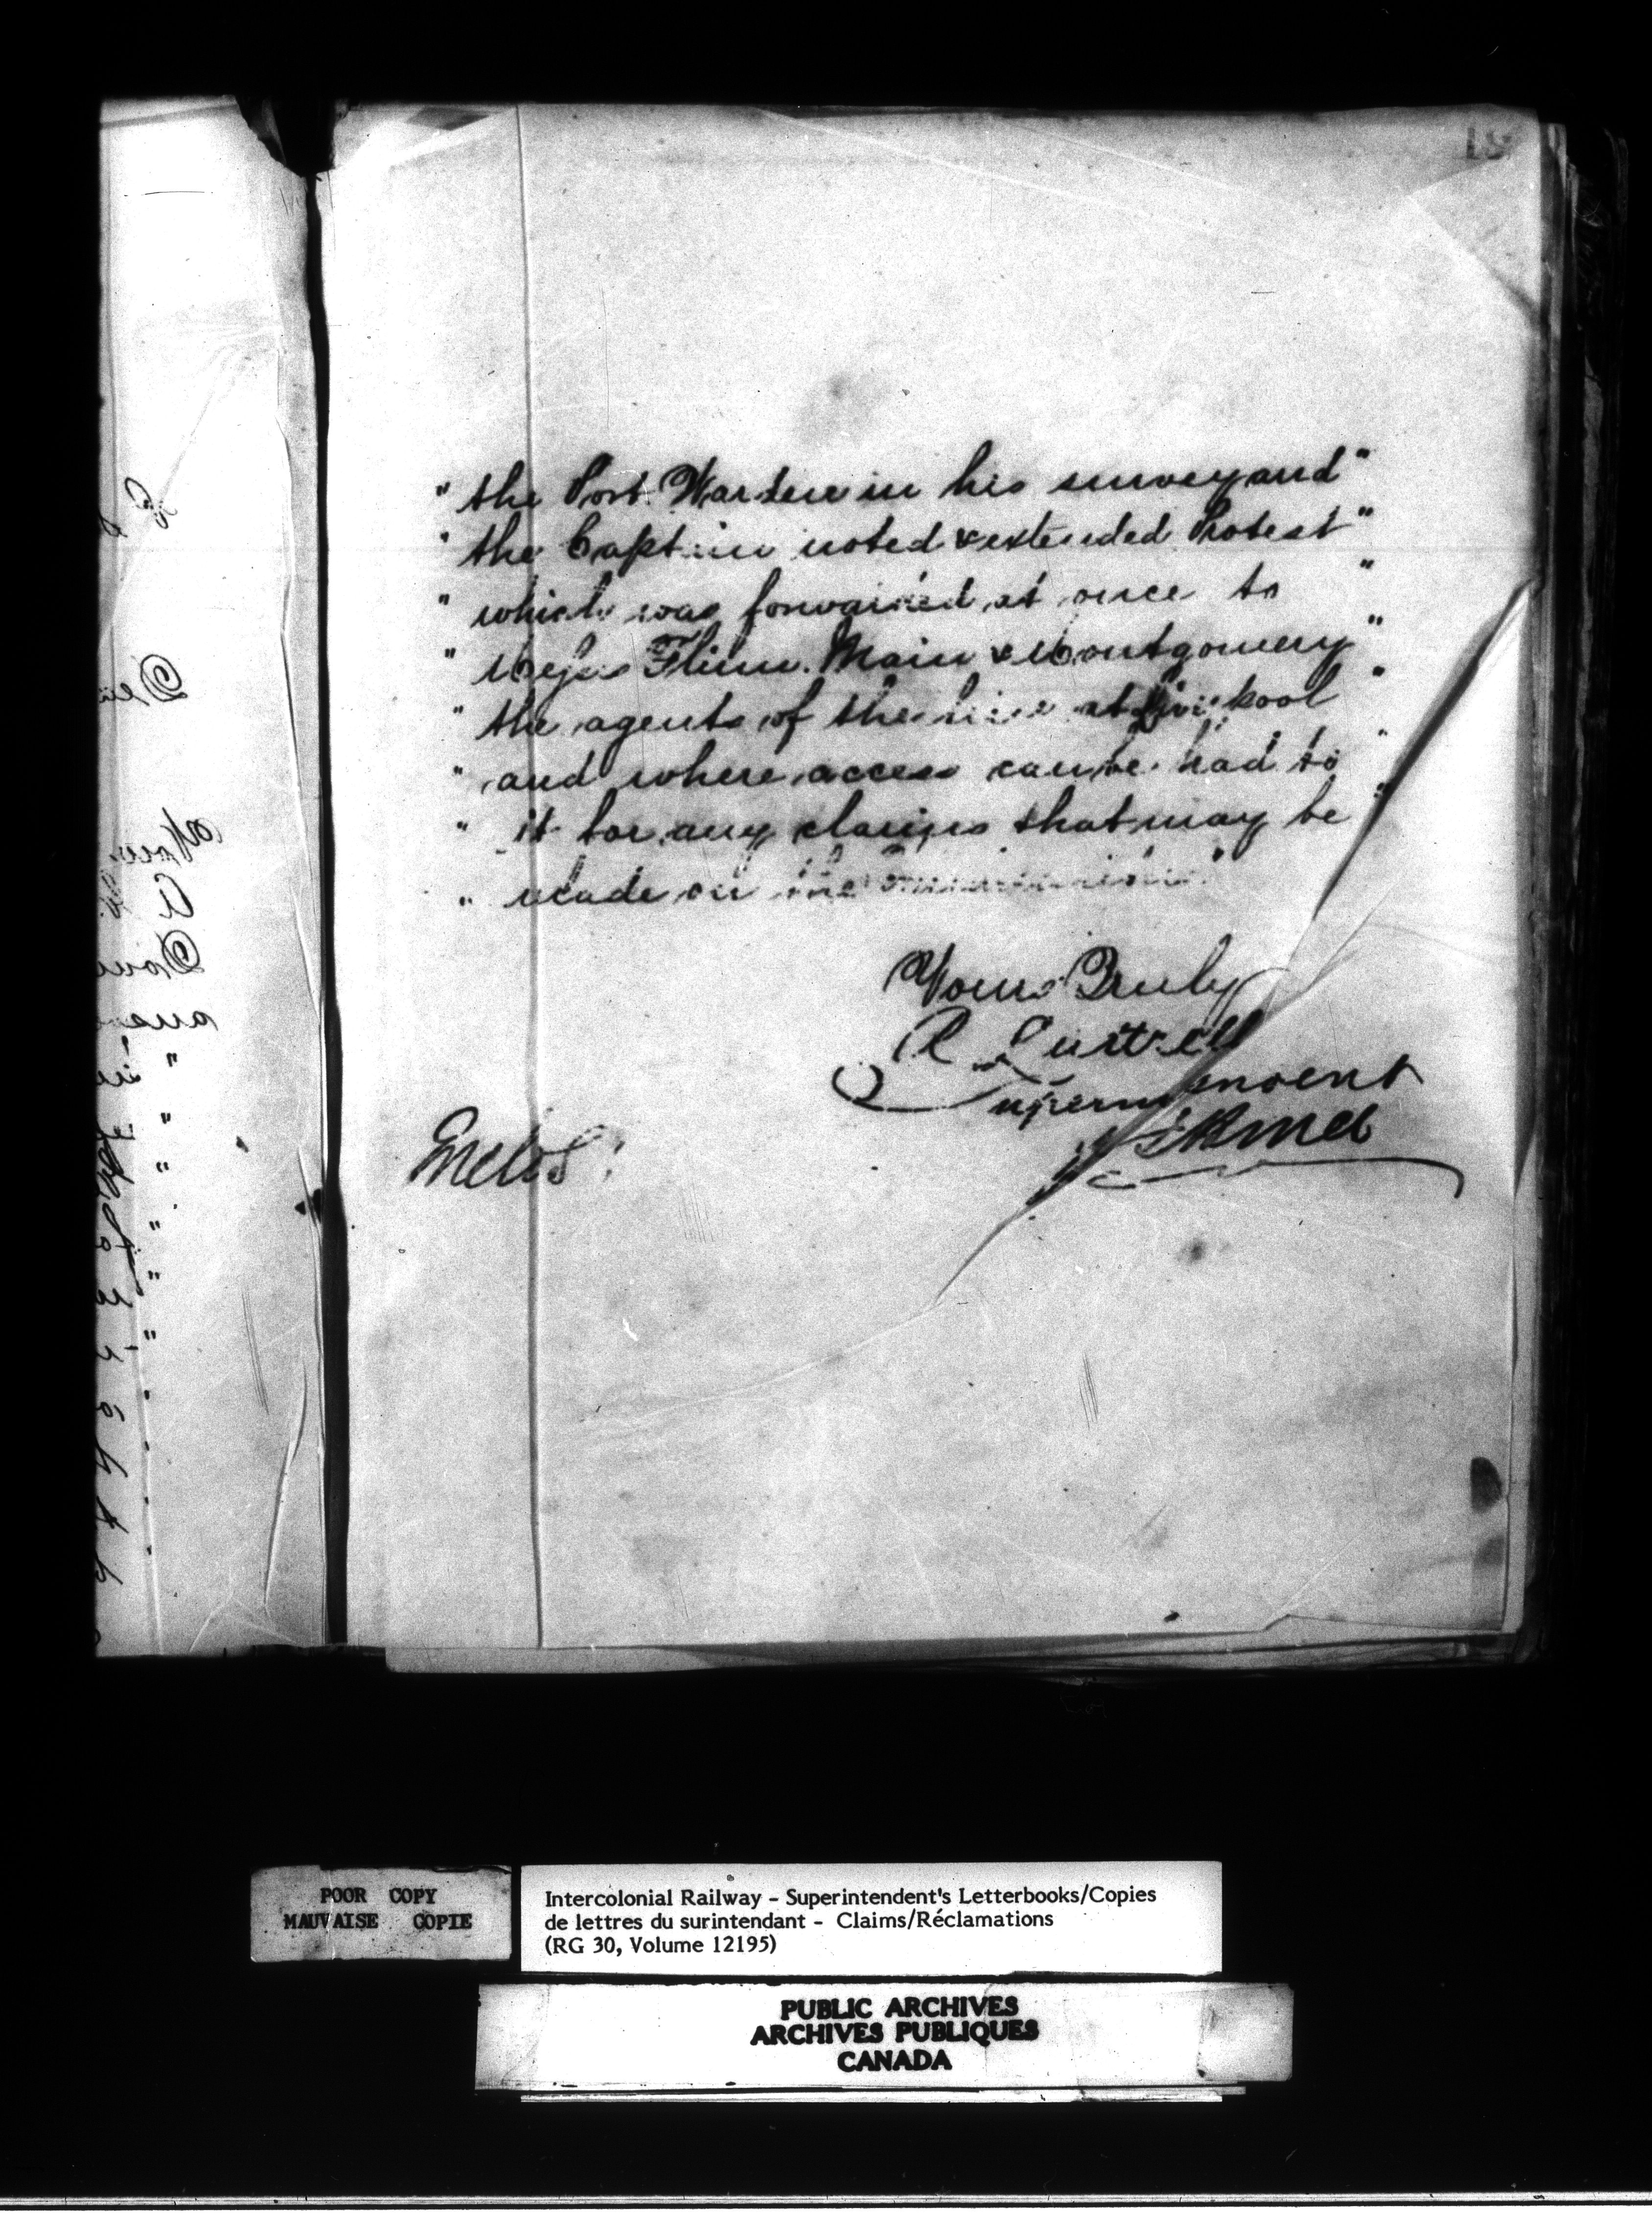 18
" the Port Warden in his survey and "
" the Captain noted & extended Protest "
" which was forwarded at once to "
" Messrs Flinn. Main & Montgomery "
" the agents of the line at Liverpool "
" and where access can be had to "
" it for any claims that may be "
" made on the
Yours Truly
R Luttrell
Superintendent
Enclos:
POOR COPY
MAUVAISE COPIE
Intercolonial Railway - Superintendent's Letterbooks/Copies
de lettres du surintendant - Claims/Réclamations
(RG 30, Volume 12195)
PUBLIC ARCHIVES
ARCHIVES PUBLIQUES
CANADA